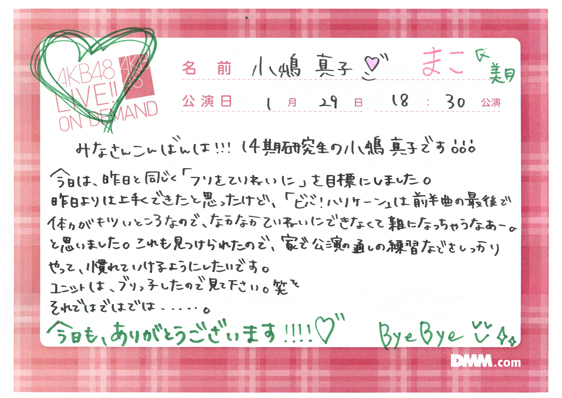 AKB48
LIVE!!
ON DEMAND
名前 小嶋 真子 まこ
美月
公演日 1月29日 18:30公演
みなさんこんばんは!!! 14期研究生の小嶋真子です
今日は、昨日と同じく「フリをていねいに」を目標にしました。
昨日よりは上手くできたと思ったけど、「ビバ!ハリケーン」は前半曲の最後で
体力がキツいところなので、なかなかていねいにできなくて雑になっちゃうなあー。
と思いました。これも見つけられたので、家で公演の通しの練習などをしっかり
やって、慣れていけるようにしたいです。
ユニットは、ブリっ子したので見て下さい。笑
それではではでは·····。
今日も、ありがとうございます!!!!
ByeBye
DMM.com